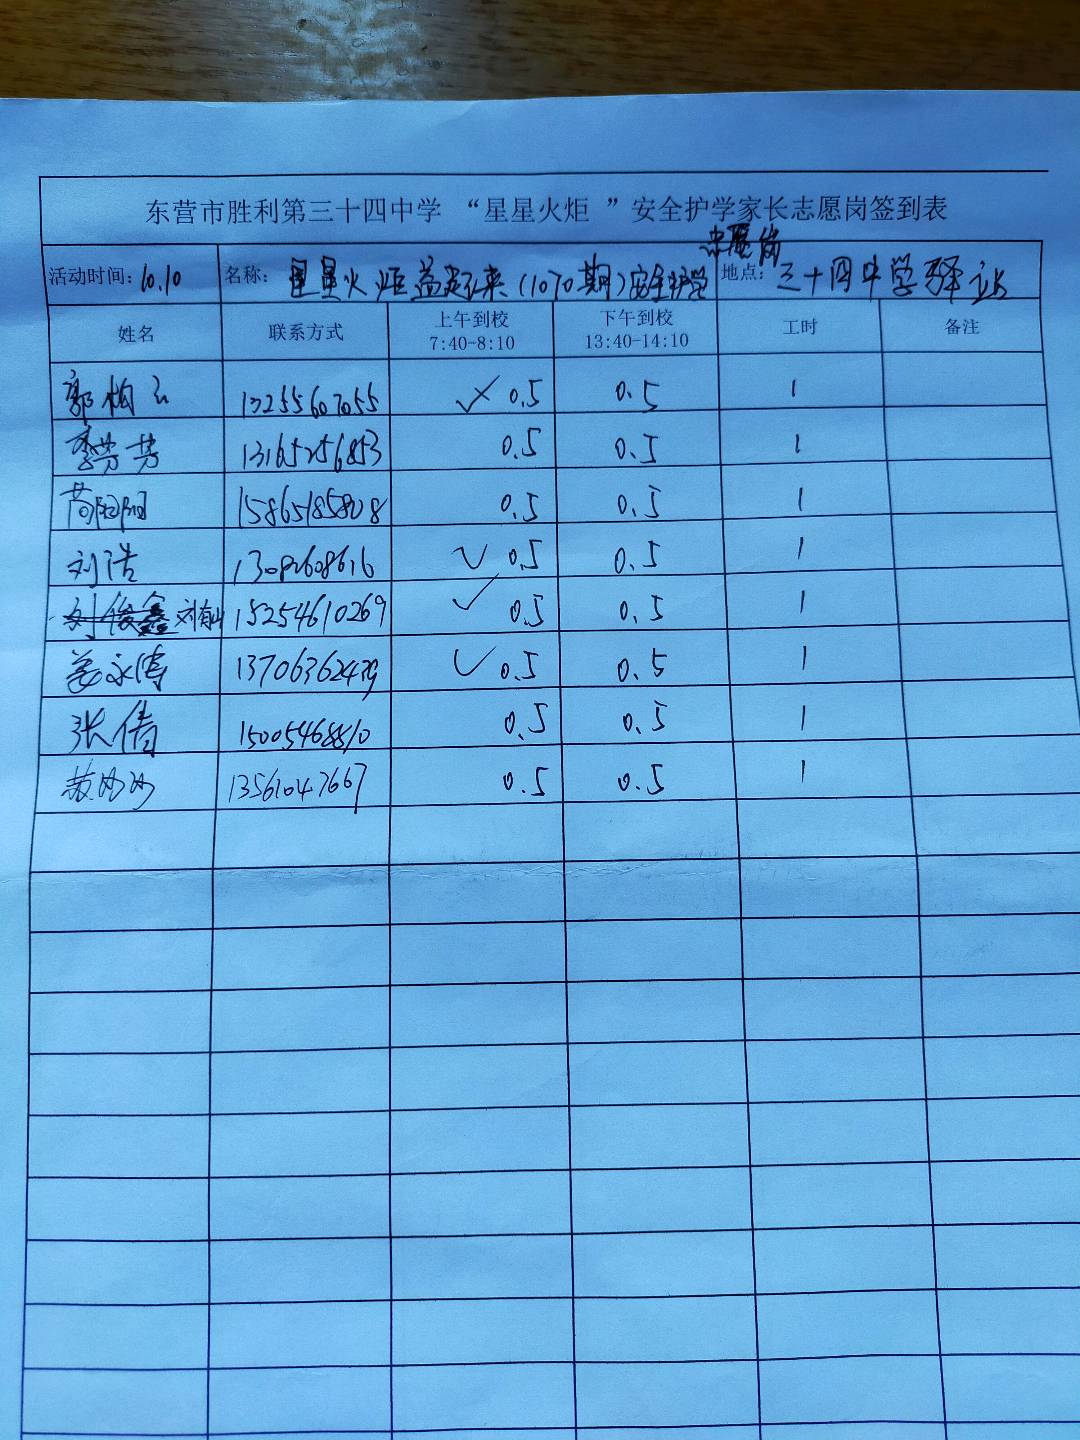 东营市胜利第三十四中学 “星星火炬 ”安全护学家长志愿岗签到表
活动时间: 10.10 名称: 星星火炬益起来(1070期)安全护学志愿岗 地点: 三十四中学驿站
姓名 联系方式 上午到校 7:40-8:10 下午到校 13:40-14:10 工时 备注
郭柏 13255607055 ✓ 0.5 0.5 1
李芳芳 13165256853 0.5 0.5 1
阳阳 0.5 0.5 1
刘浩 ✓ 0.5 0.5 1
刘俊鑫 刘 15254610269 ✓ 0.5 0.5 1
姜永涛 13706362439 ✓ 0.5 0.5 1
张倩 15005468810 0.5 0.5 1
13561047667 0.5 0.5 1